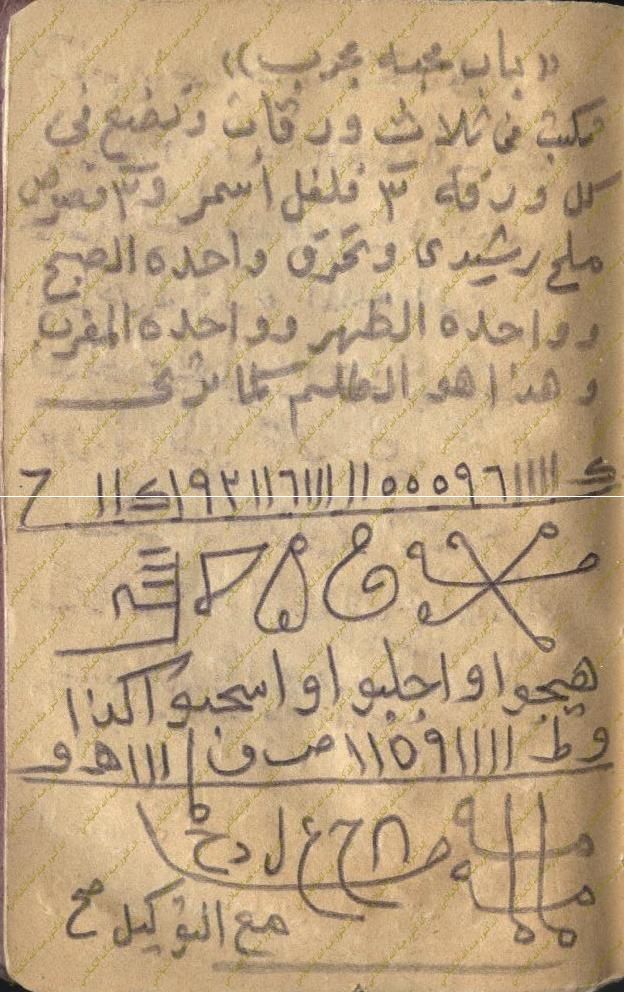 «باب محبه مجرب»
تكتب في ثلاث ورقات وتضع في
كل ورقه ٣ فلفل أسمر و٣ فصوص
ملح رشيدى وتحرق واحده الصبح
وواحده الظهر وواحده المغرب
وهذا هو الطلسم كما ترى
ك١١١١٩٦٥٥٥١١١١١٦١١٩٢١ك١١ح
هيجوا واجلبوا واسحبوا كذا
وط١١١١١٩٥١١ص ف١١١١هـ و
ح ع ل د خ
مع التوكيل صح